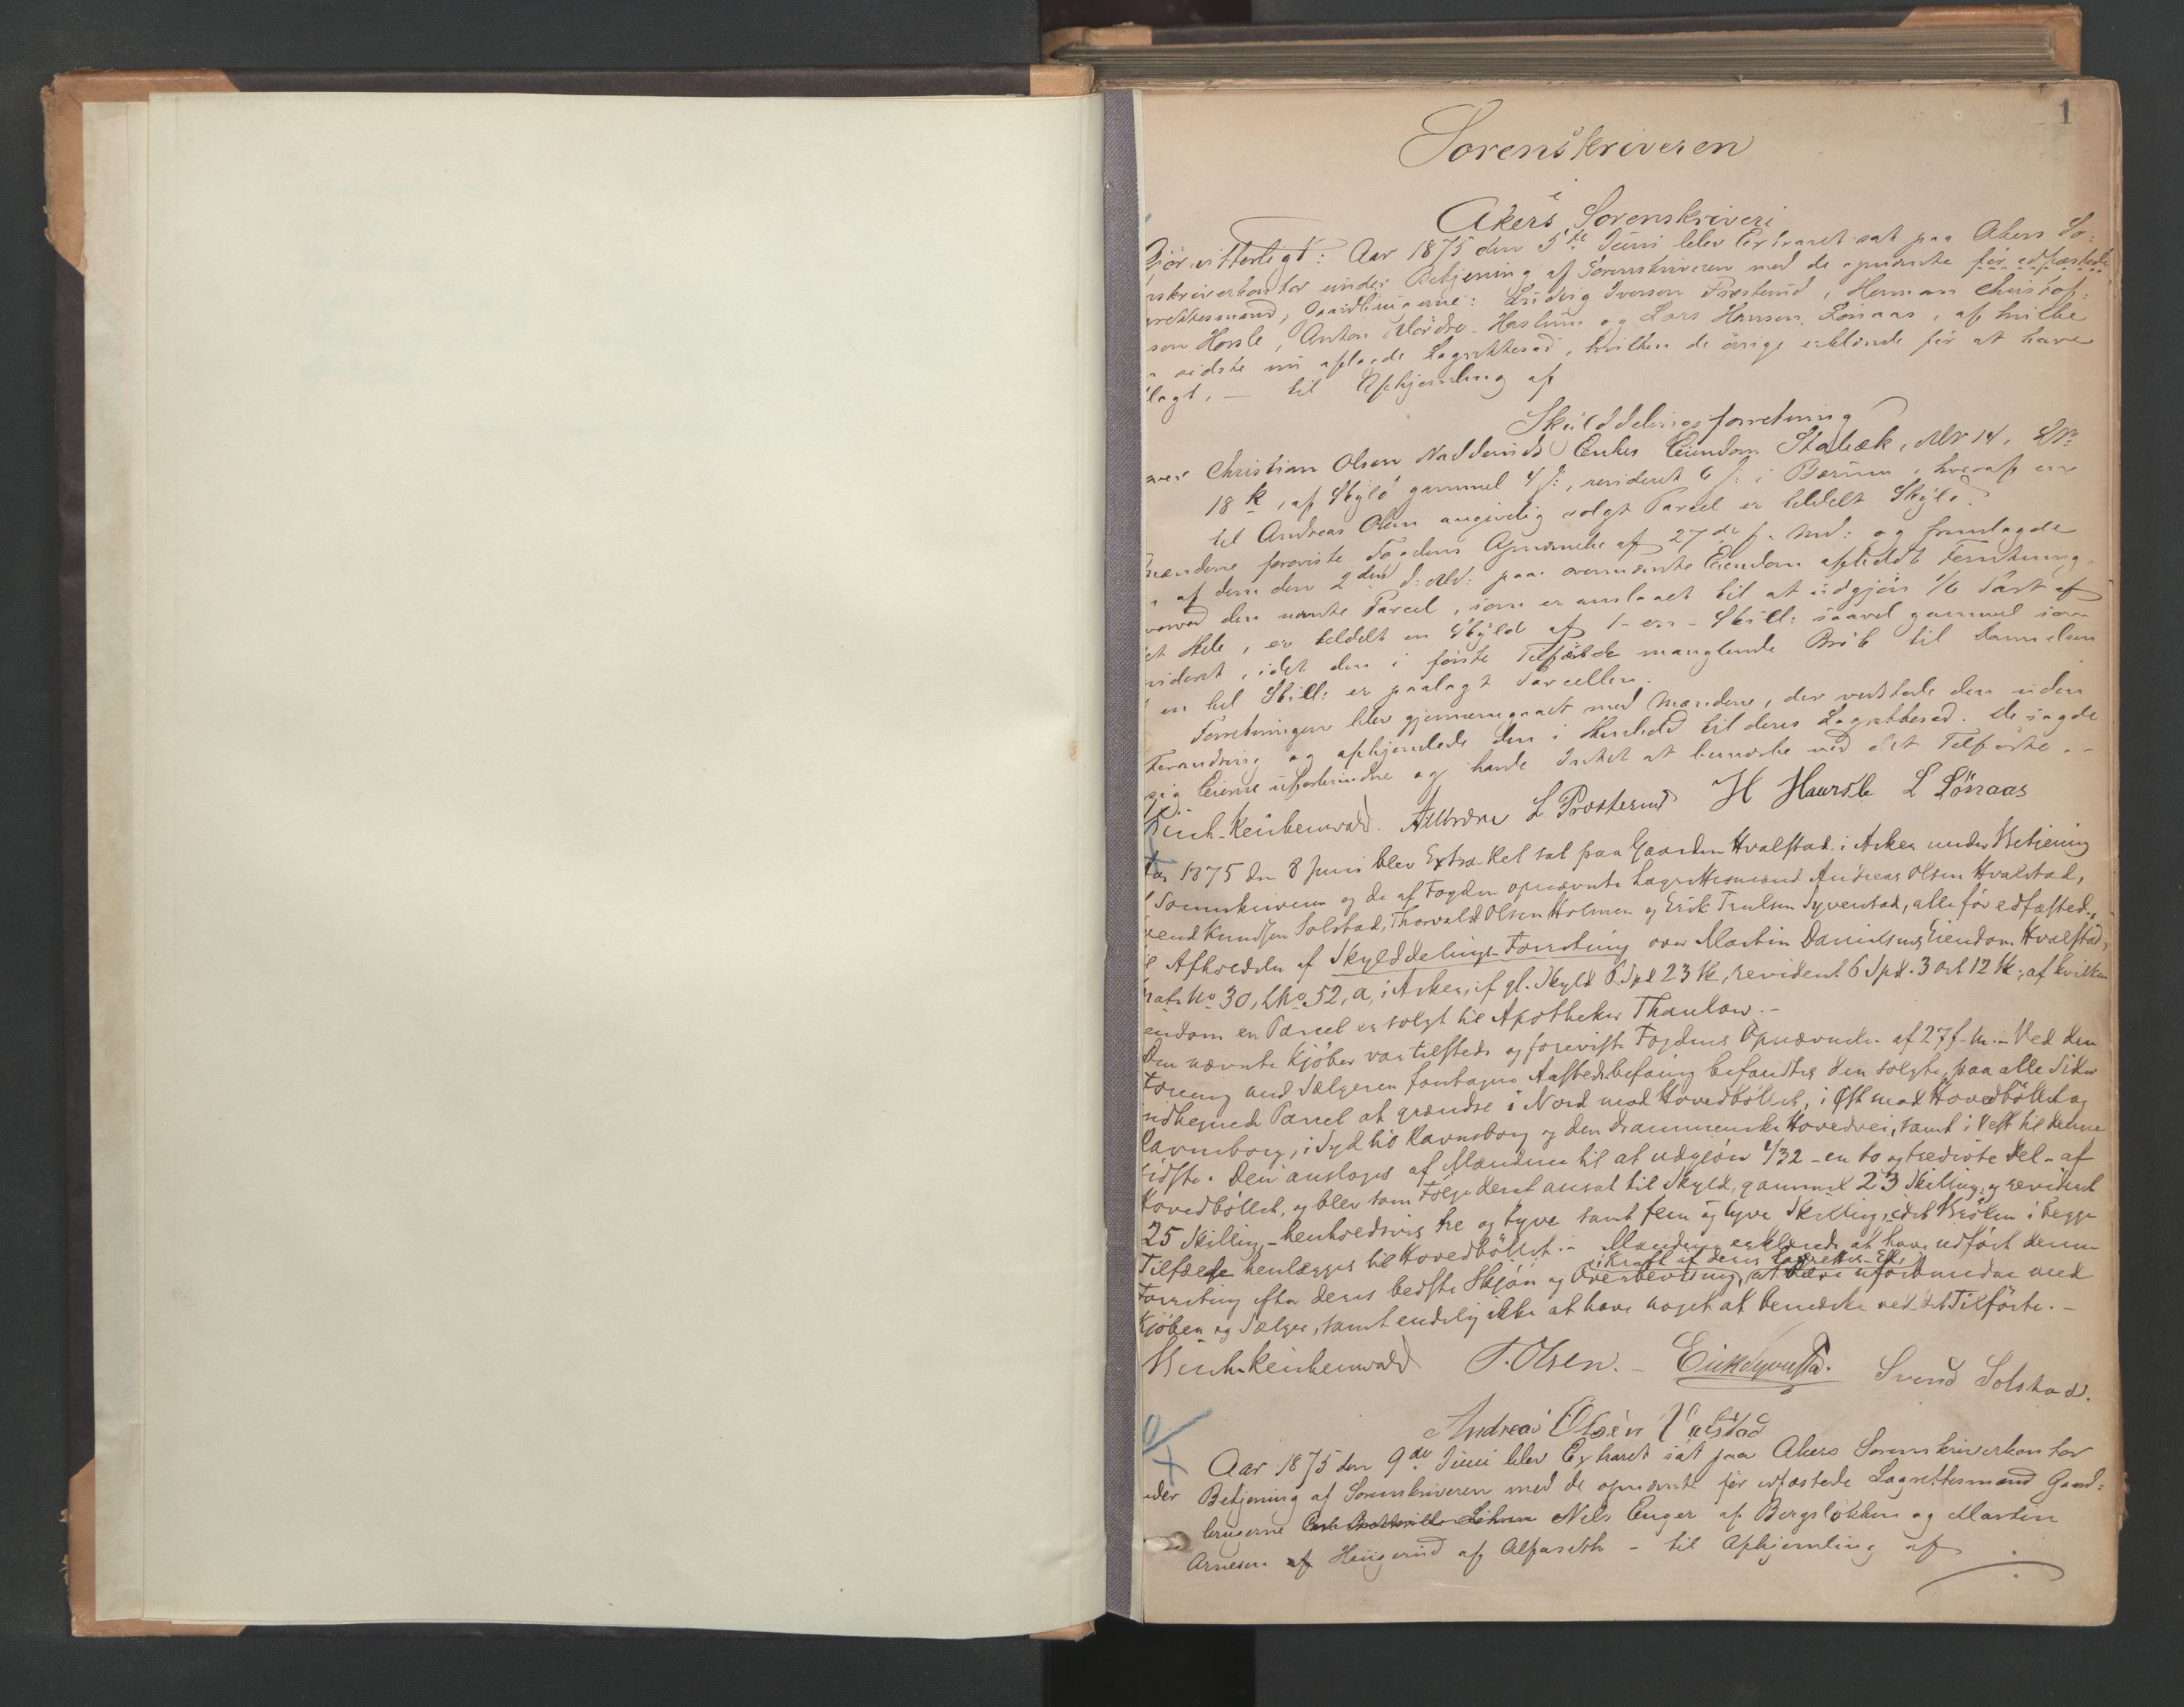 1
Sorenskriveren
i
Akers Sorenskriveri
Gjör vitterligt: Aar 1875 den 5te Juni blev Extraret sat paa Akers So-
nskriverkontor under Betjening af Sorenskriveren med de opnævnte før edfæstede
grettesmænd, Gaardbrugerne: Ludvig Iversen Præsterud, Herman Christof-
sen Hosle, Anton Mördre-Haslum og Lars Hansen Lönaas, af hvilke
n sidste nu aflagde Lagretteseed, hvilken de övrige erklærede för at have
lagt, — til Afhjemling af
Skylddelingsforretning
over Christian Olsen Nadderuds Enkes Eiendom Stabæk, MNr 14, LNr
18 k, af Skyld gammel 4 ß:, revideret 6 ß: i Bærum, hvoraf en
til Andreas Olsen angivelig solgt Parcel er tildelt Skyld.
Mændene foreviste Fogdens Opnævnelse af 27de f. Md: og fremlagde
n af dem den 2den d: Md: paa ovennævnte Eiendom afholdt Forretning,
vorved den nævnte Parcel, som er anslaaet til at udgjøre 1/6 Part af
et Hele, er tildelt en Skyld af 1 - een - Skill: saavel gammel som
videret, idet den i første Tilfælde manglende Brök til Dannelsen
f en hel Skill: er paalagt Parcellen.
Forretningen blev gjennemgaaet med Mændene, der vedstode den uden
Forandring og afhjemlede den i Henhold til deres Lagretteseed. De sagde
sig Eierne uforbundne og havde Intet at bemærke ved det Tilførte. -
Birch-Reichenwald. AMördre L. Præsterud H Haarsle L Lönaas
Aar 1875 den 8 Juni blev Extra-Ret sat paa Gaarden Hvalstad i Asker under Betjening
f Sorenskriveren og de af Fogden opnævnte Lagrettesmænd Andreas Olsen Hvalstad,
Svend Knudsen Solstad, Thorvald Olsen Holmen og Erik Trulsen Syverstad, alle før edfæstede,
il Afholdelse af Skylddelings-Forretning over Martin Danielsens Eiendom Hvalstad,
Matr No 30, LNo 52, a, i Asker, af gl. Skyld 6 Spd 23 ß, revideret 6 Spd. 3 ort 12 ß, af hvilken
endom en Parcel er solgt til Apotheker Thaulow. -
Den nævnte Kjöber var tilstede og foreviste Fogdens Opnævnelse af 27 f. M. - Ved den
Forening med Sælgeren foretagne Aastedsbefaring befandtes den solgte, paa alle Sider
indhegnede Parcel at grændse i Nord mod Hovedböllet, i Öst mod Hovedböllet og
Ravnsborg, i Syd til Ravnsborg og den drammenske Hovedvei, samt i Vest til denne
sidste. Den ansloges af Mændene til at udgjöre 1/32 - en to og tredivte Del - af
Hovedböllet, og blev som Fölge deraf ansat til Skyld, gammel 23 Skilling, og revideret
25 Skilling, - henholdsvis tre og tyve samt fem og tyve Skilling, idet Bröken i begge
Tilfælde henlægges til Hovedböllet. - Mændene erklærede at have udfört denne
i Kraft af deres Lagrettes-Ed
Forretning efter deres bedste Skjön og Overbevisning, at være uforbundne med
Kjöber og Sælger, samt endelig ikke at have noget at bemærke ved det Tilförte. -
Birch-Reichenwald T. Olsen. - Erik Syverstad. Svend Solstad.
Andreas Olsen Valstad
Aar 1875 den 9de Juni blev Extraret sat paa Akers Sorenskriverkontor
nder Betjening af Sorenskriveren med de opnævnte för edfæstede Lagrettesmænd Gaard-
brugerne Nils Enger af Bergslökken og Martin
Arnesen af Haugerud af Alfaseth - til Afhjemling af